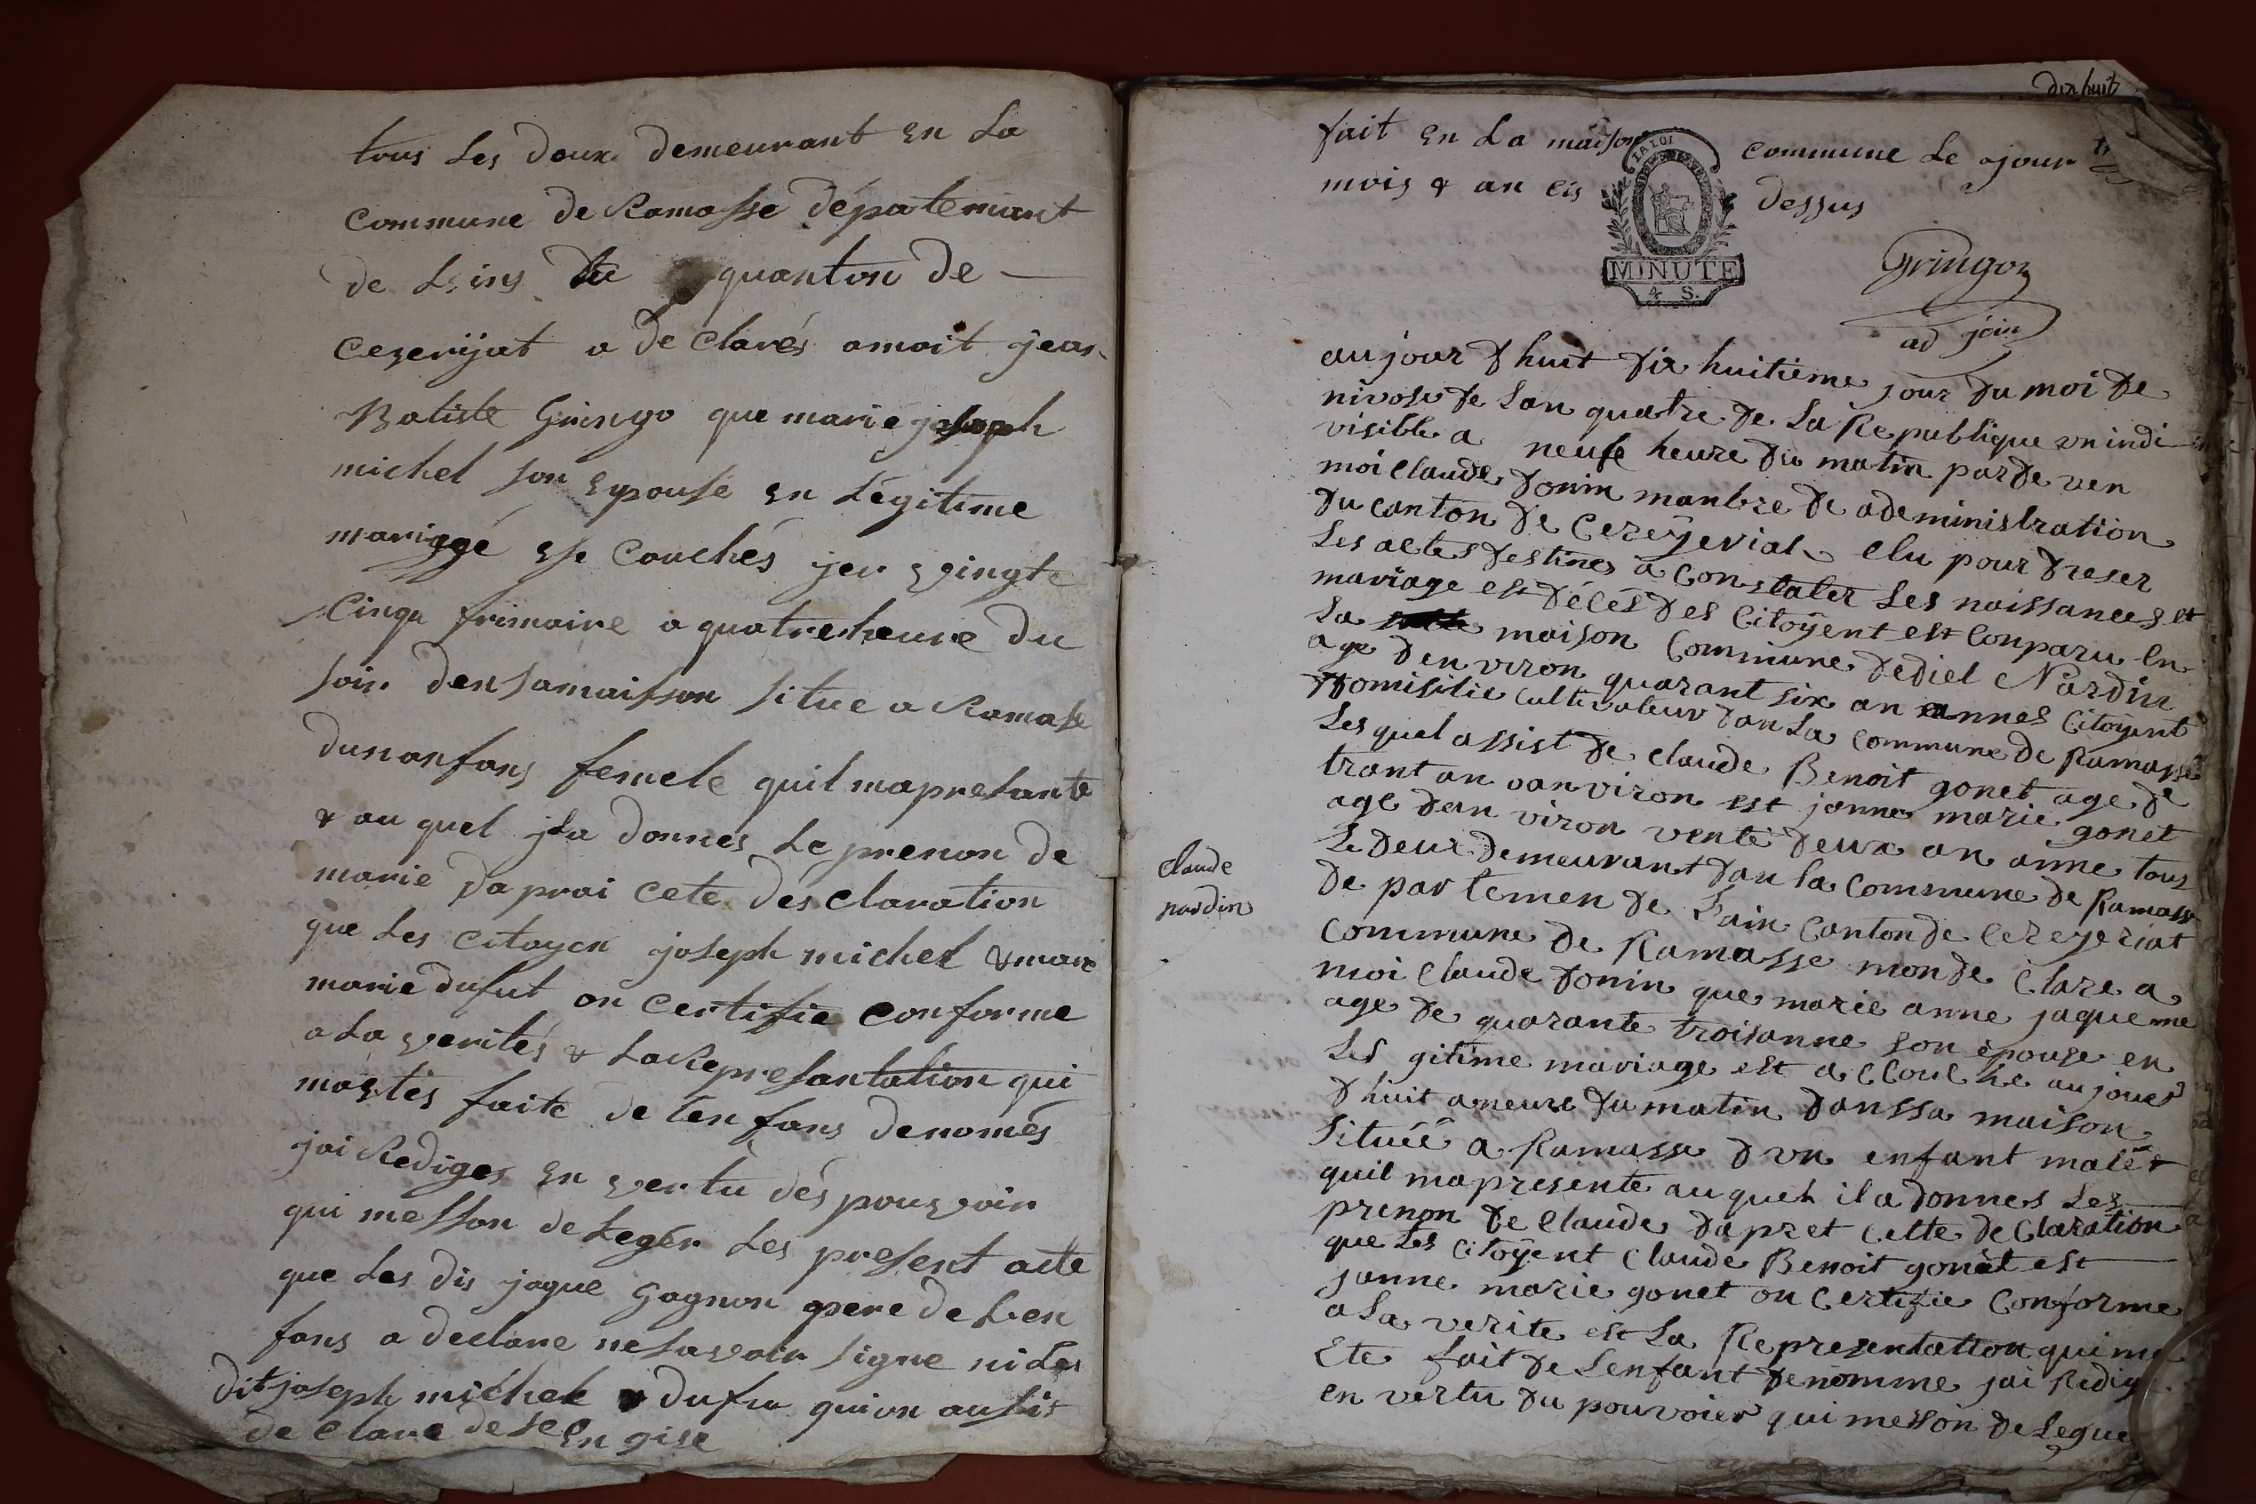 tous Les deux demeurant en La
commune de Ramasse départemant
de Leins du quanton de
Cezerijat a de clarés amoit jean
Batiste Gringo que marie joseph
michel son epouse en Légitime
mariagé est Couchés jer vingte
cinqu frimaire a quatre heure du
soir densamaisson situe a Ramasse
dunanfans femele quil mapresante
& au quel jla donnes Le prenon de
marie daprai cete désclaration
que Les citoyen joseph michel & marie
marie dufut on certifie conforme
a La verités & La Represantation qui
mastés faite de Lenfans denomés
jai Rediges en vertu dés pouvoir
qui messon deleger Les present acte
que Les dis jaque Gagnon pere de Len
fans a declare ne savoir signe ni Les
dit joseph michel & dufu quion aussis
de clare de se en gise
dix huit
fait en La maison commune Le jour
mois & an cis dessus
LA LOI
MINUTE
4 S.
Gringoz
ad join
aujour dhuit dix huitieme jour du moi de
nivose de Lan quatre de La Republique un indi
visible a neufe heure du matin par de ven
moi claude donin manbre de administration
du canton de Cereÿeriat elu pour dreser
Les actes destines a Constater Les naissances et
mariage est décés des Citoÿent est Conparu en
La maison Commune dediel Nardin
age denviron quarant six an annes Citoÿent
domisilie cultivateur dan La commune de Ramasse
Les quel assist de claude Benoit gonet age de
trant an oanviron est janne marie gonet
age dan viron vente deux an anne tous
Le deux demeurant dan la commune de Ramasse
de partemen de Lain Canton de Cereyeriat
commune de Ramasse mon de Clare a
moi Claude donin que marie anne jaqueme
age de quarante troisanne son epouse en
Les gitime mariage est a ccouche aujour
dhuit a neure du matin danssa maison
Situéé a Ramasse dun enfant male &
quil mapresente au quel il a donnes Les
prenon de Claude dapret cette declaration
que Les Citoÿent Claude Benoit gonet est
janne marie gonet on certifie Conforme
a La verite est La Representation qui ma
Ete fait de Lenfant denomme jai Redige
en vertu du pouvoier qui messon de Legue
claude
nardin